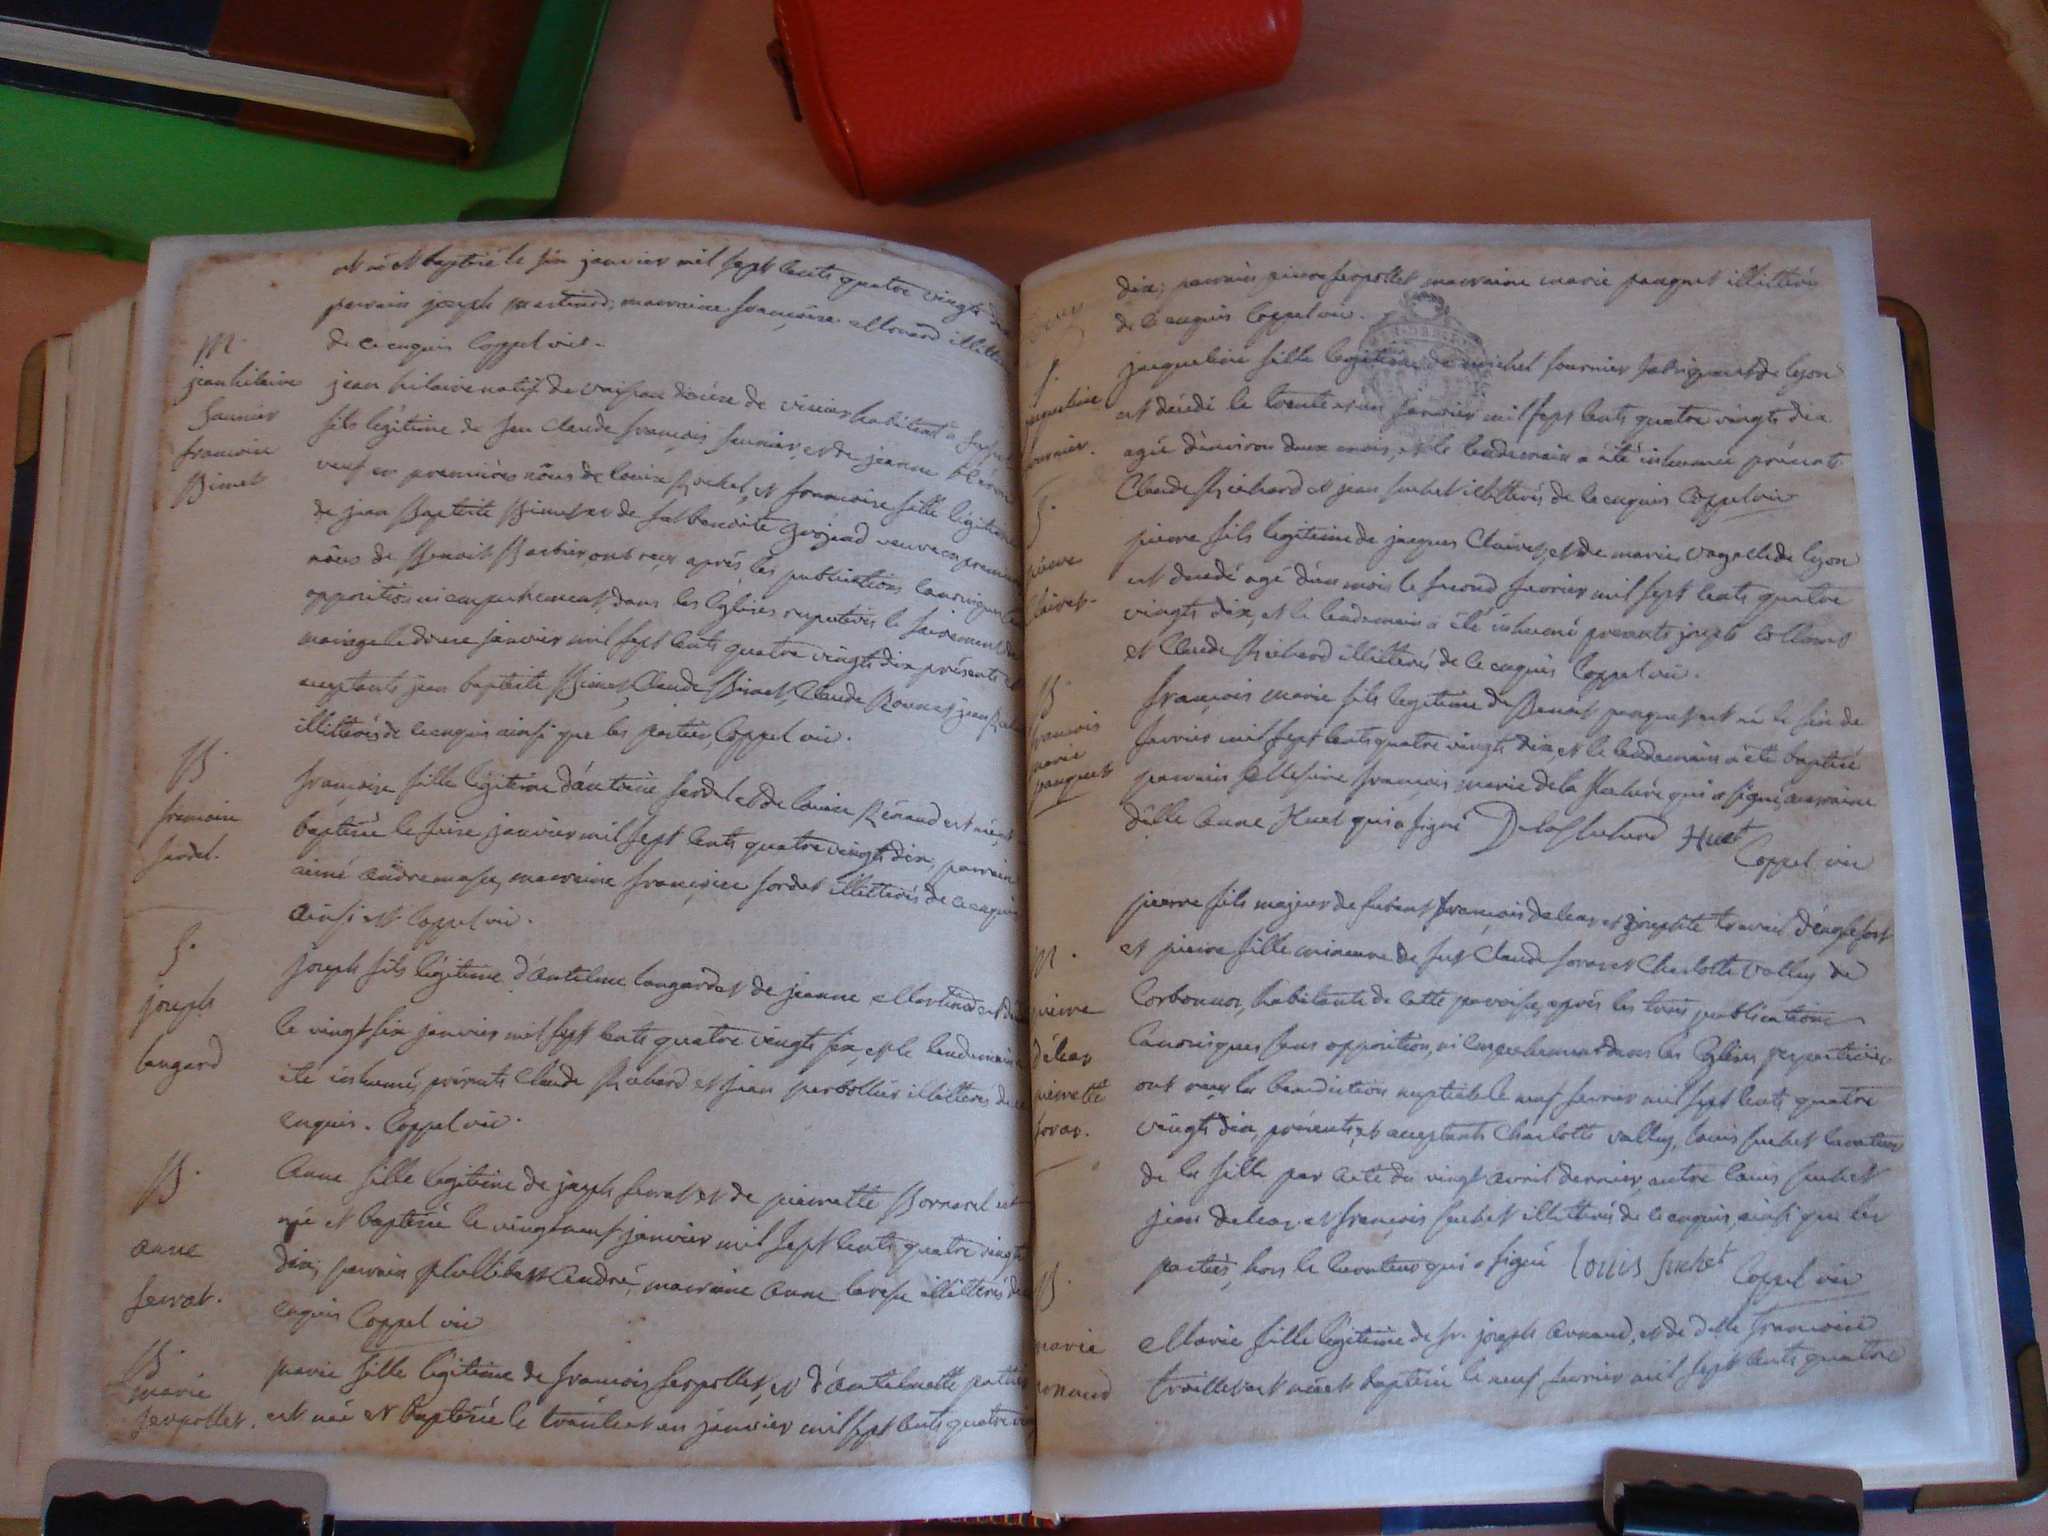 est né et baptisé le six janvier mil sept cents quatre vingts dix
parrain joseph martinod, marraine françoise Monard illitterés
de ce enquis Coppel vic.
M.
jean hilaire
saunier
francoise
Binet
jean hilaire natif de diocèse de habitant à
fils légitime de feu Claude françois saunier, et de jeanne
veuf en premières nôces de louise Richel, et francoise fille légitime
de jean Baptiste Binet et de benoite veuve en premiere
nôces de Benoit Barbier, ont reçu après les publications canoniques sans
opposition ni empechement, dans les Eglises respectives le sacrement de
mariage le douze janvier mil sept cents quatre vingts dix présents et
acceptants jean baptiste Binet, Claude Binet, Claude Bonnet, jean
illitterés de ce enquis ainsi que les parties, Coppel vic.
B.
francoise
sardel.
françoise fille légitime d'antoine sardel et de louise Rénaud est née et
baptisée le seize janvier mil sept cents quatre vingts dix, parrain
aimé andremasse, marraine françoise illitterés de ce enquis
ainsi est Coppel vic.
S.
joseph
langard
joseph fils légitime d'antelme langard et de jeanne Martinod est
le vingt six janvier mil sept cents quatre vingts six, et le lendemain a
été inhumé, présents Claude Richard et jean illitterés de ce
enquis. Coppel vic.
B.
anne
serrat.
Anne fille légitime de joseph serrat et de pierrette Bornarel est
née et baptisée le vingt neuf janvier mil sept cents quatre vingts
dix, parrain phillibert André, marraine Anne illitterés de
enquis Coppel vic
B.
marie
serpollet.
marie fille légitime de francois serpollet, et d'antelmette
est née et baptisée le trente et un janvier mil sept cents quatre vingts
dix; parrain pierre serpollet marraine marie panguet illitterés
de ce enquis Coppel vic.
S.
jacqueline
fournier.
jacqueline fille légitime de michel fournier fabriquant de lyon
est décédé le trente et un janvier mil sept cents quatre vingts dix
agée d'environ deux mois, et le lendemain a été inhumée présents
Claude Richard et jean suchet illitterés de ce enquis Coppel vic
S.
pierre
Clairet.
pierre fils légitime de jacques Clairet, et de marie de lyon
est decedé agé d'un mois le second fevrier mil sept cents quatre
vingts dix, et le lendemain a été inhumé presents joseph Collomb
et Claude Richard illitterés de ce enquis Coppel vic.
B.
francois
marie
panguet
françois marie fils legitime de Benoit panguet est né le six de
fevrier mil sept cents quatre vingts dix, et le lendemain a été baptisé
parrain Messire françois marie de la qui a signé, marraine
d'elle Anne Huet qui a signé Huet
Coppel vic
M.
pierre
déléaz
pierrette
soraz.
pierre fils majeur de françois deleaz et josephte travail d'anglefort
et pierre fille mineure de fut Claude soraz et Charlotte Valluy de
Corbonnoz, habitante de cette paroisse, après les trois publications
Canoniques sans opposition, ni empechement dans les Eglises respectives
ont reçu la benediction nuptiale le neuf fevrier mil sept cents quatre
vingts dix, présents, et acceptants Charlotte Valluy, louis suchet curateur
de la fille par acte du vingt avril dernier, autre louis suchet
jean deleaz, et françois suchet illitterés de ce enquis, ainsi que les
parties, hors le curateur qui a signé louis suchet
Coppel vic
B.
marie
Arnaud
Marie fille légitime de sr. joseph Arnaud, et de Delle francoise
est née et baptisée le neuf fevrier mil sept cents quatre